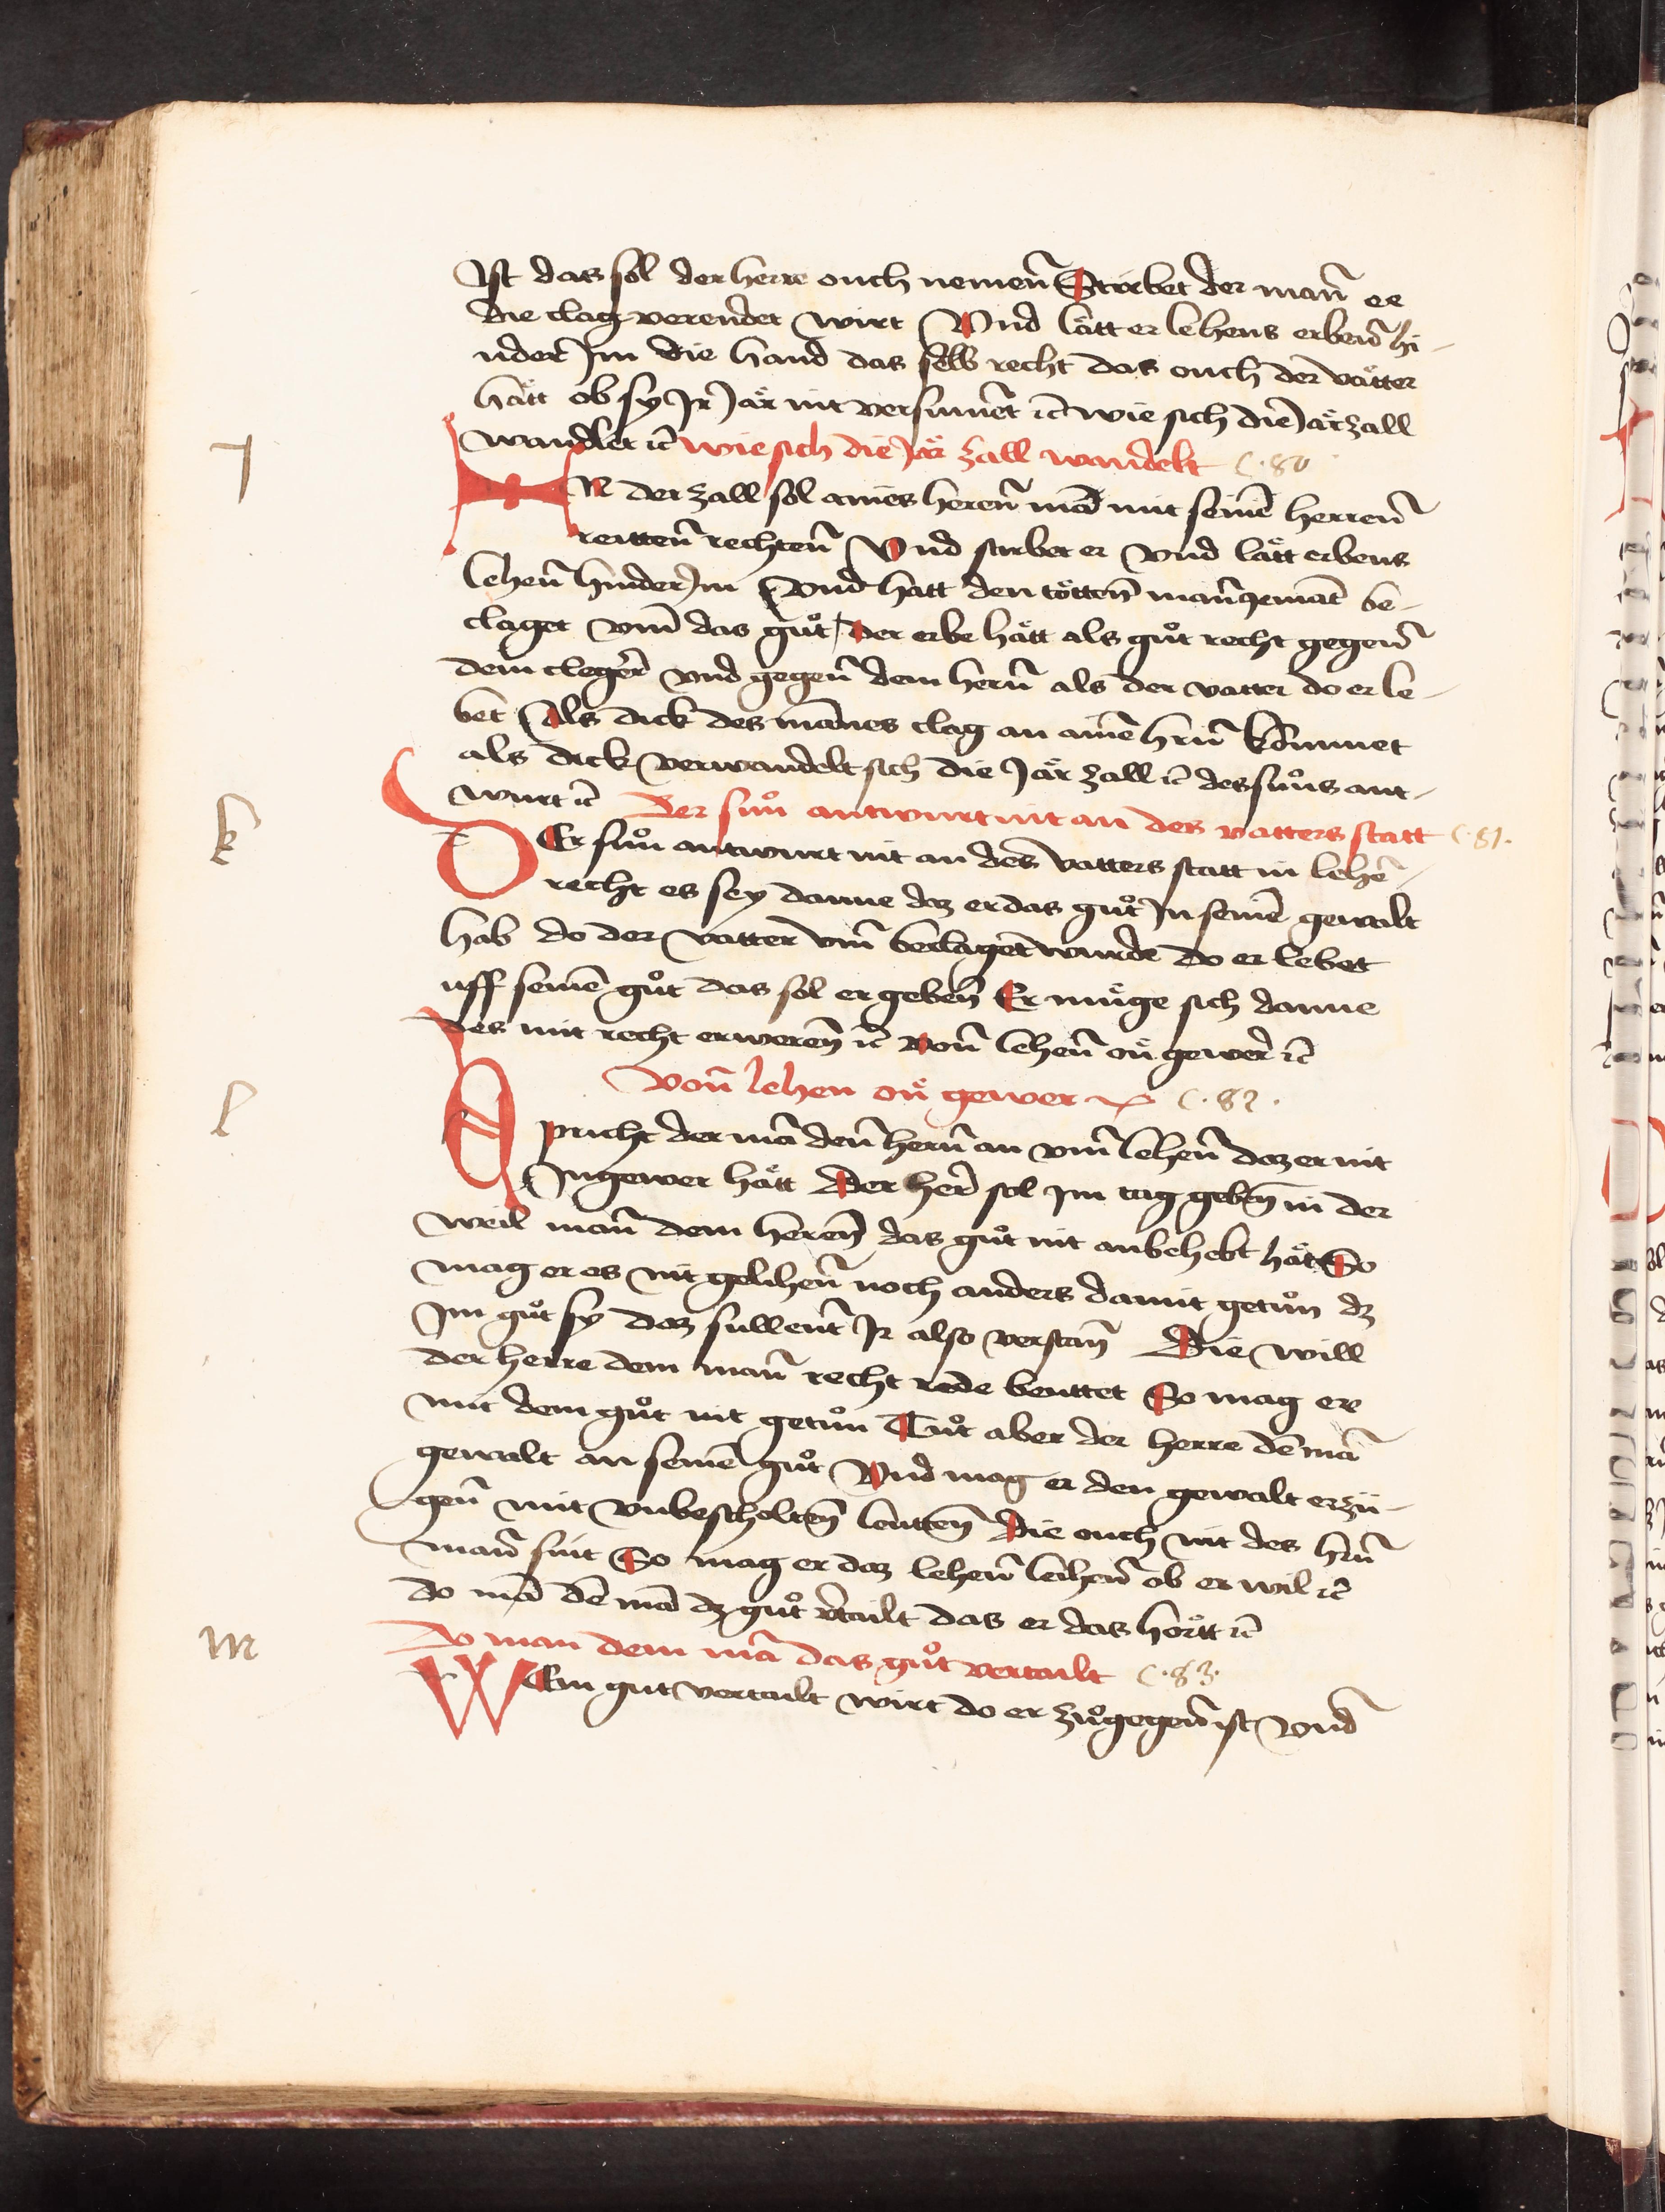 Ist das sol der herre ouch nemen̄ Stirbet der man̄ ee
die clag verendet wirt Vnd lått er lehens erben̄ hi-
nder Im die hand das selb recht das ouch der våtter
hått ob sy Ir Jår nit versumet ꝛc wie sich die Jårzall
wandlet ꝛc wie sich die Jår zall wandelt C. 80
J
IN der zall sol aines heren̄ mā mit seinē herren̄
reitten̄ rechten̄ Vnd stirbet er vnd lått erbens
lehen̄ hinder Im Vnd hatt den tötten̄ man̄ yemāt be-
claget vm̄ das gůt Der erbe hått als gůt recht gegen̄
dem cleger vnd gegen̄ dem hern̄ als der vatter do er le-
bet Als dick des mānes clag an ainē hrn̄ kommet
als dick verwandelt sich die Jår zall ꝛc des sůns ant-
wurt ꝛc Der sůn antwurt nit an des vatters statt C. 81.
k
DEr sůn antwurt nit an des vatters statt in lehē-
recht es sey danne daz er das gůt In seinē gewalt
hab do der vatter vm̄ beclaget wurde do er lebet
uff seinē gůt das sol er geben̄ Er müge sich danne
des mit recht erweren̄ ꝛc Von̄ lehen̄ on̄ gewer ꝛc
Von̄ lehen on̄ gewer ꝛc C. 82.
l
Spricht der mā den̄ hern̄ an vm̄ lehen̄ daz er nit
In gewer hått Der her sol im tag geben̄ in der
weil man̄ dem heren̄ das gůt nit anbehebt håt So
mag er es nit gelihen̄ noch anders damit getůn dz
Im gůt sy daz sullent Ir also verstan̄ Die will
der herre dem man̄ recht rede beuttet So mag er
mit dem gůt nit getůn Tůt aber der herre dē mā
gewalt an seinē gůt Vnd mag er den gewalt erzü-
gen̄ mit vnbescholten̄ leutten̄ Die ouch nit des hrn̄
man̄ sint So mag er daz lehen̄ leihen̄ ob er wil ꝛc
do mā dē mā dz gůt vertailt das er das hörtt ꝛc
Do man dem mā das gůt vertailt C. 83.
m
WEm gut vertailt wirt do er zůgegen̄ ist Vnd